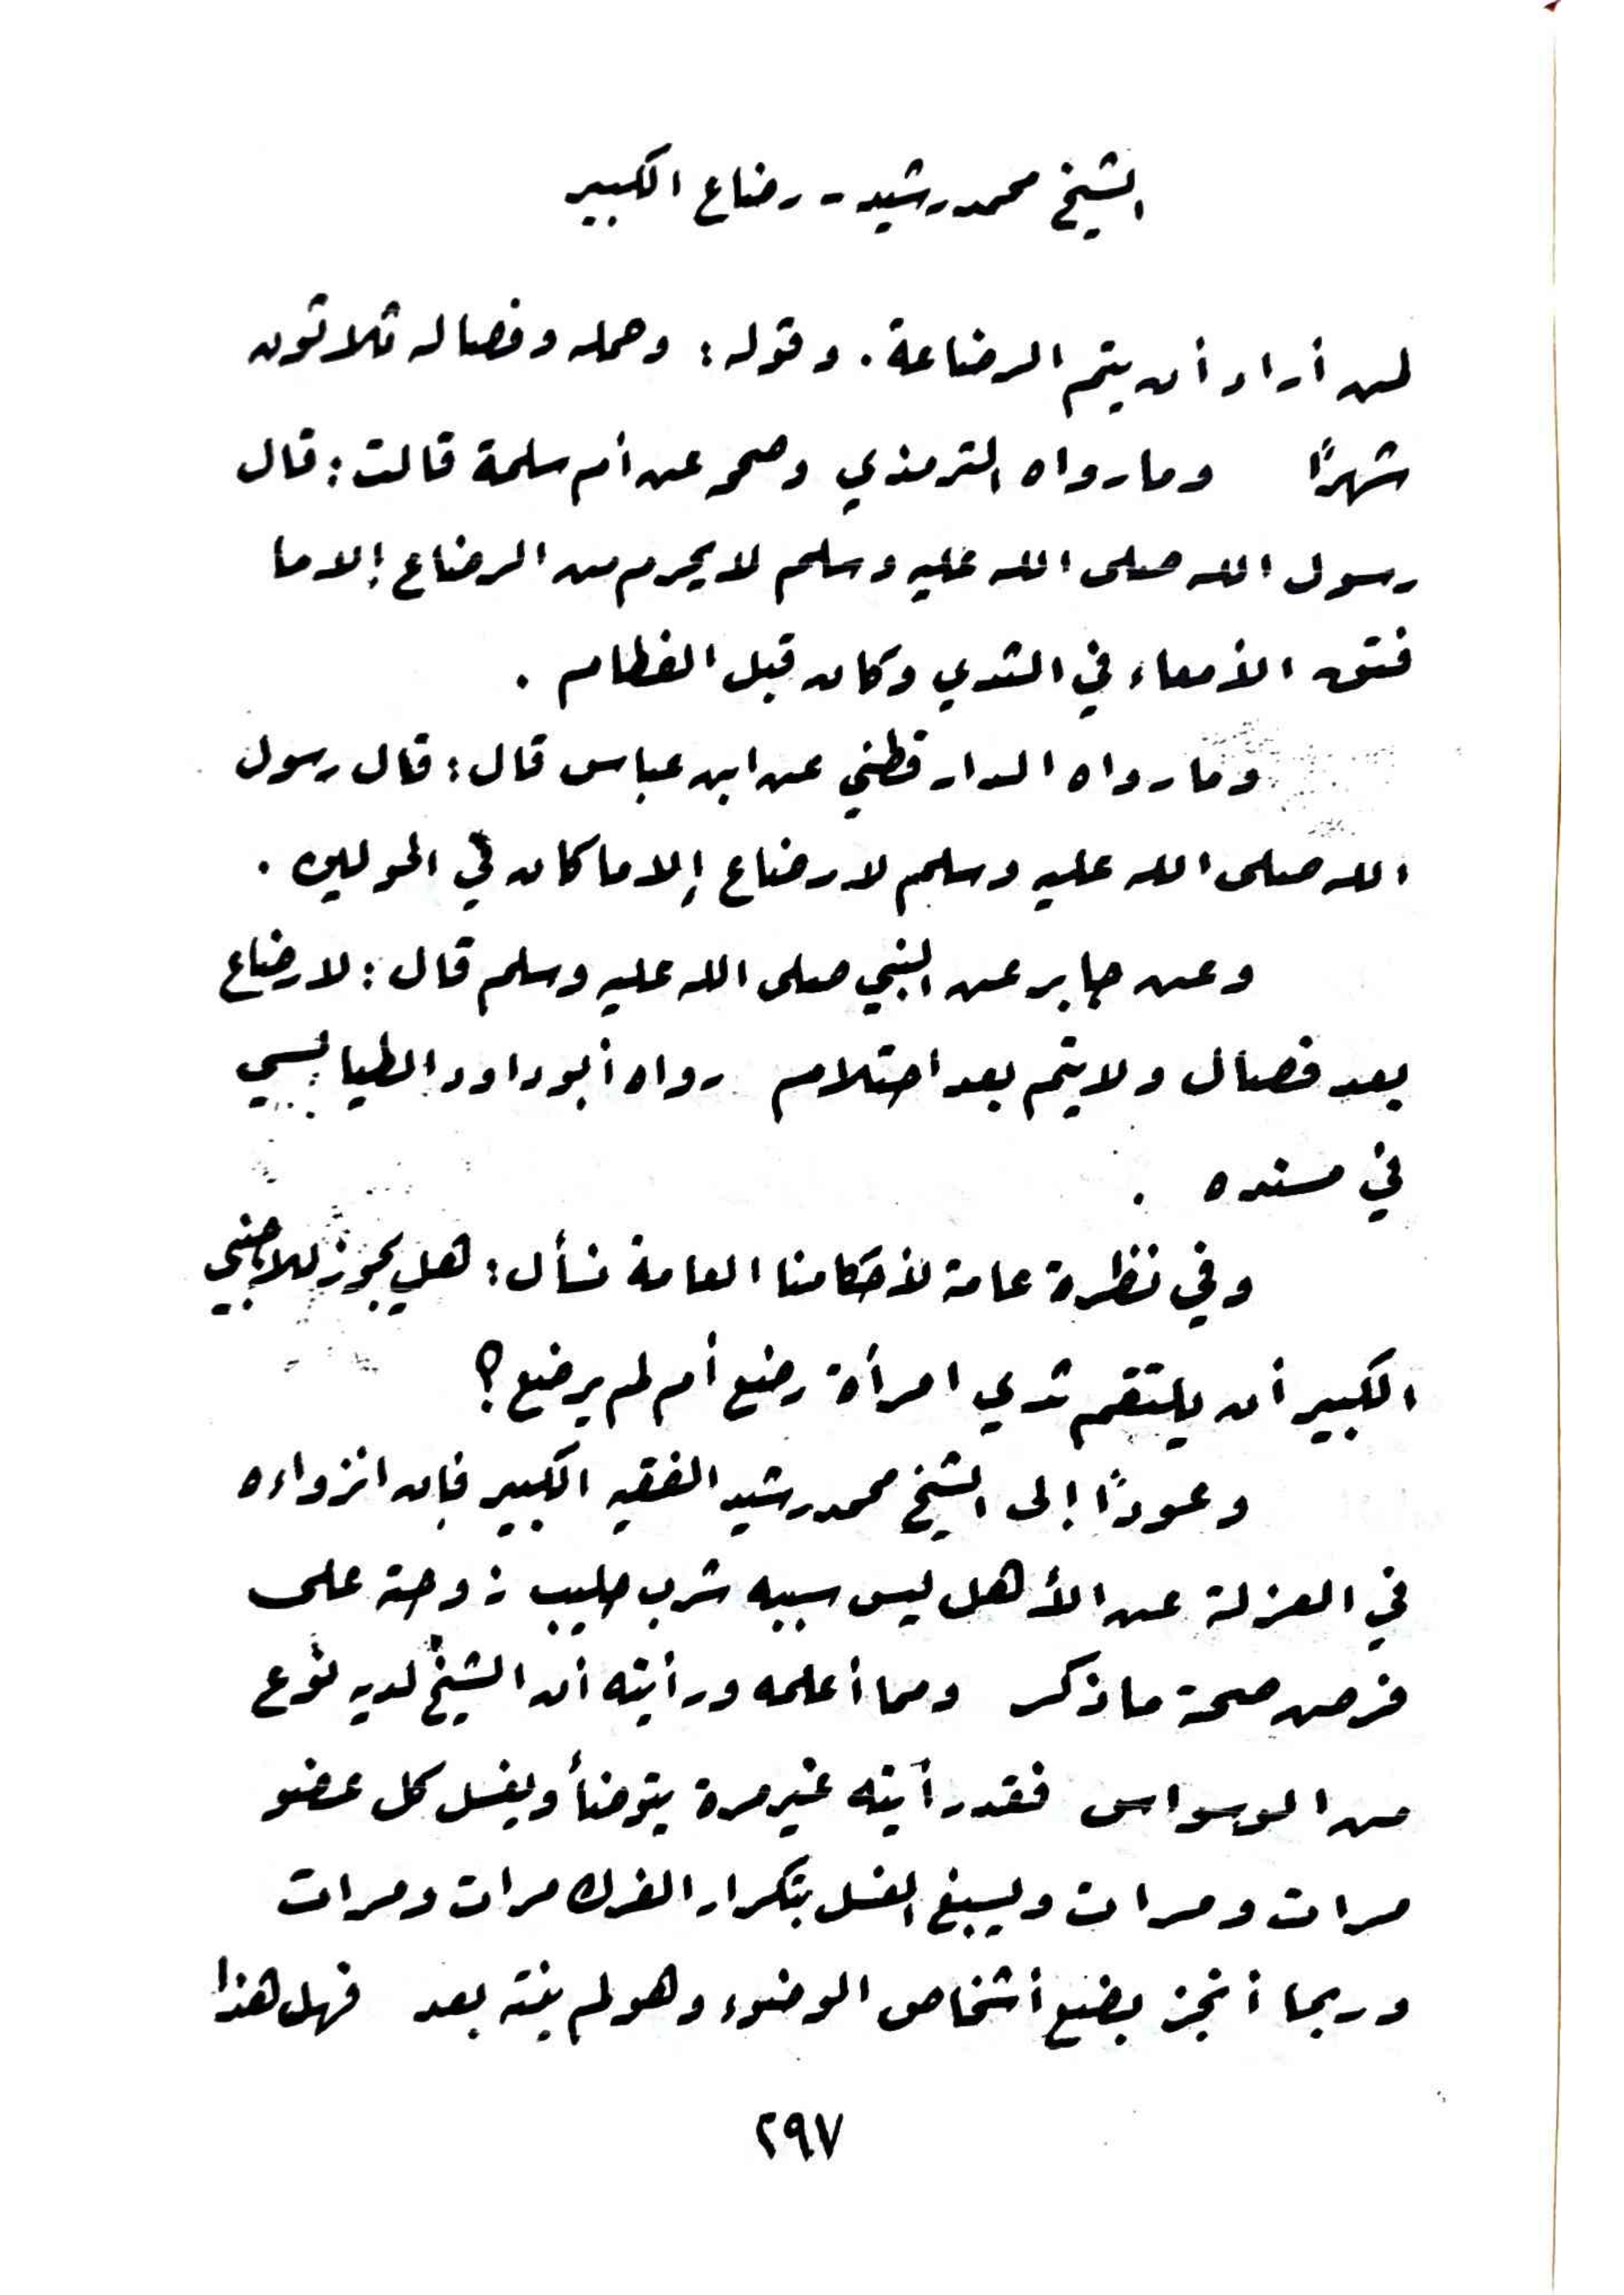 الشيخ محمد رشيد - رضاع الكبير
لمن أراد أن يتم الرضاعة. وقوله: وحمله وفصاله ثلاثون
شهرًا وما رواه الترمذي وصححه عن أم سلمة قالت: قال
رسول الله صلى الله عليه وسلم لا يحرم من الرضاع إلا ما
فتق الأمعاء في الثدي وكان قبل الفطام.
وما رواه الدارقطني عن ابن عباس قال: قال رسول
الله صلى الله عليه وسلم لا رضاع إلا ما كان في الحولين.
وعن جابر عن النبي صلى الله عليه وسلم قال: لا رضاع
بعد فصال ولا يتم بعد احتلام رواه أبو داود الطيالسي
في مسنده.
وفي نظرة عامة لأحكامنا العامة نسأل: هل يجوز للاجنبي
الكبير أن يلتقم ثدي امرأة رضع أم لم يرضع؟
وعودًا إلى الشيخ محمد رشيد الفقيه الكبير فإن انزواءه
في العزلة عن الأهل ليس سببه شرب حليب زوجته على
فرض صحة ما ذكر ومما أعلمه ورأيته أن الشيخ لديه نوع
من الوسواس فقد رأيته غير مرة يتوضأ ويغسل كل عضو
مرات ومرات ويسبغ الغسل بتكرار الفرك مرات ومرات
وربما أنجز بضع أشخاص الوضوء وهو لم ينته بعد فهل هذا
٢٩٧